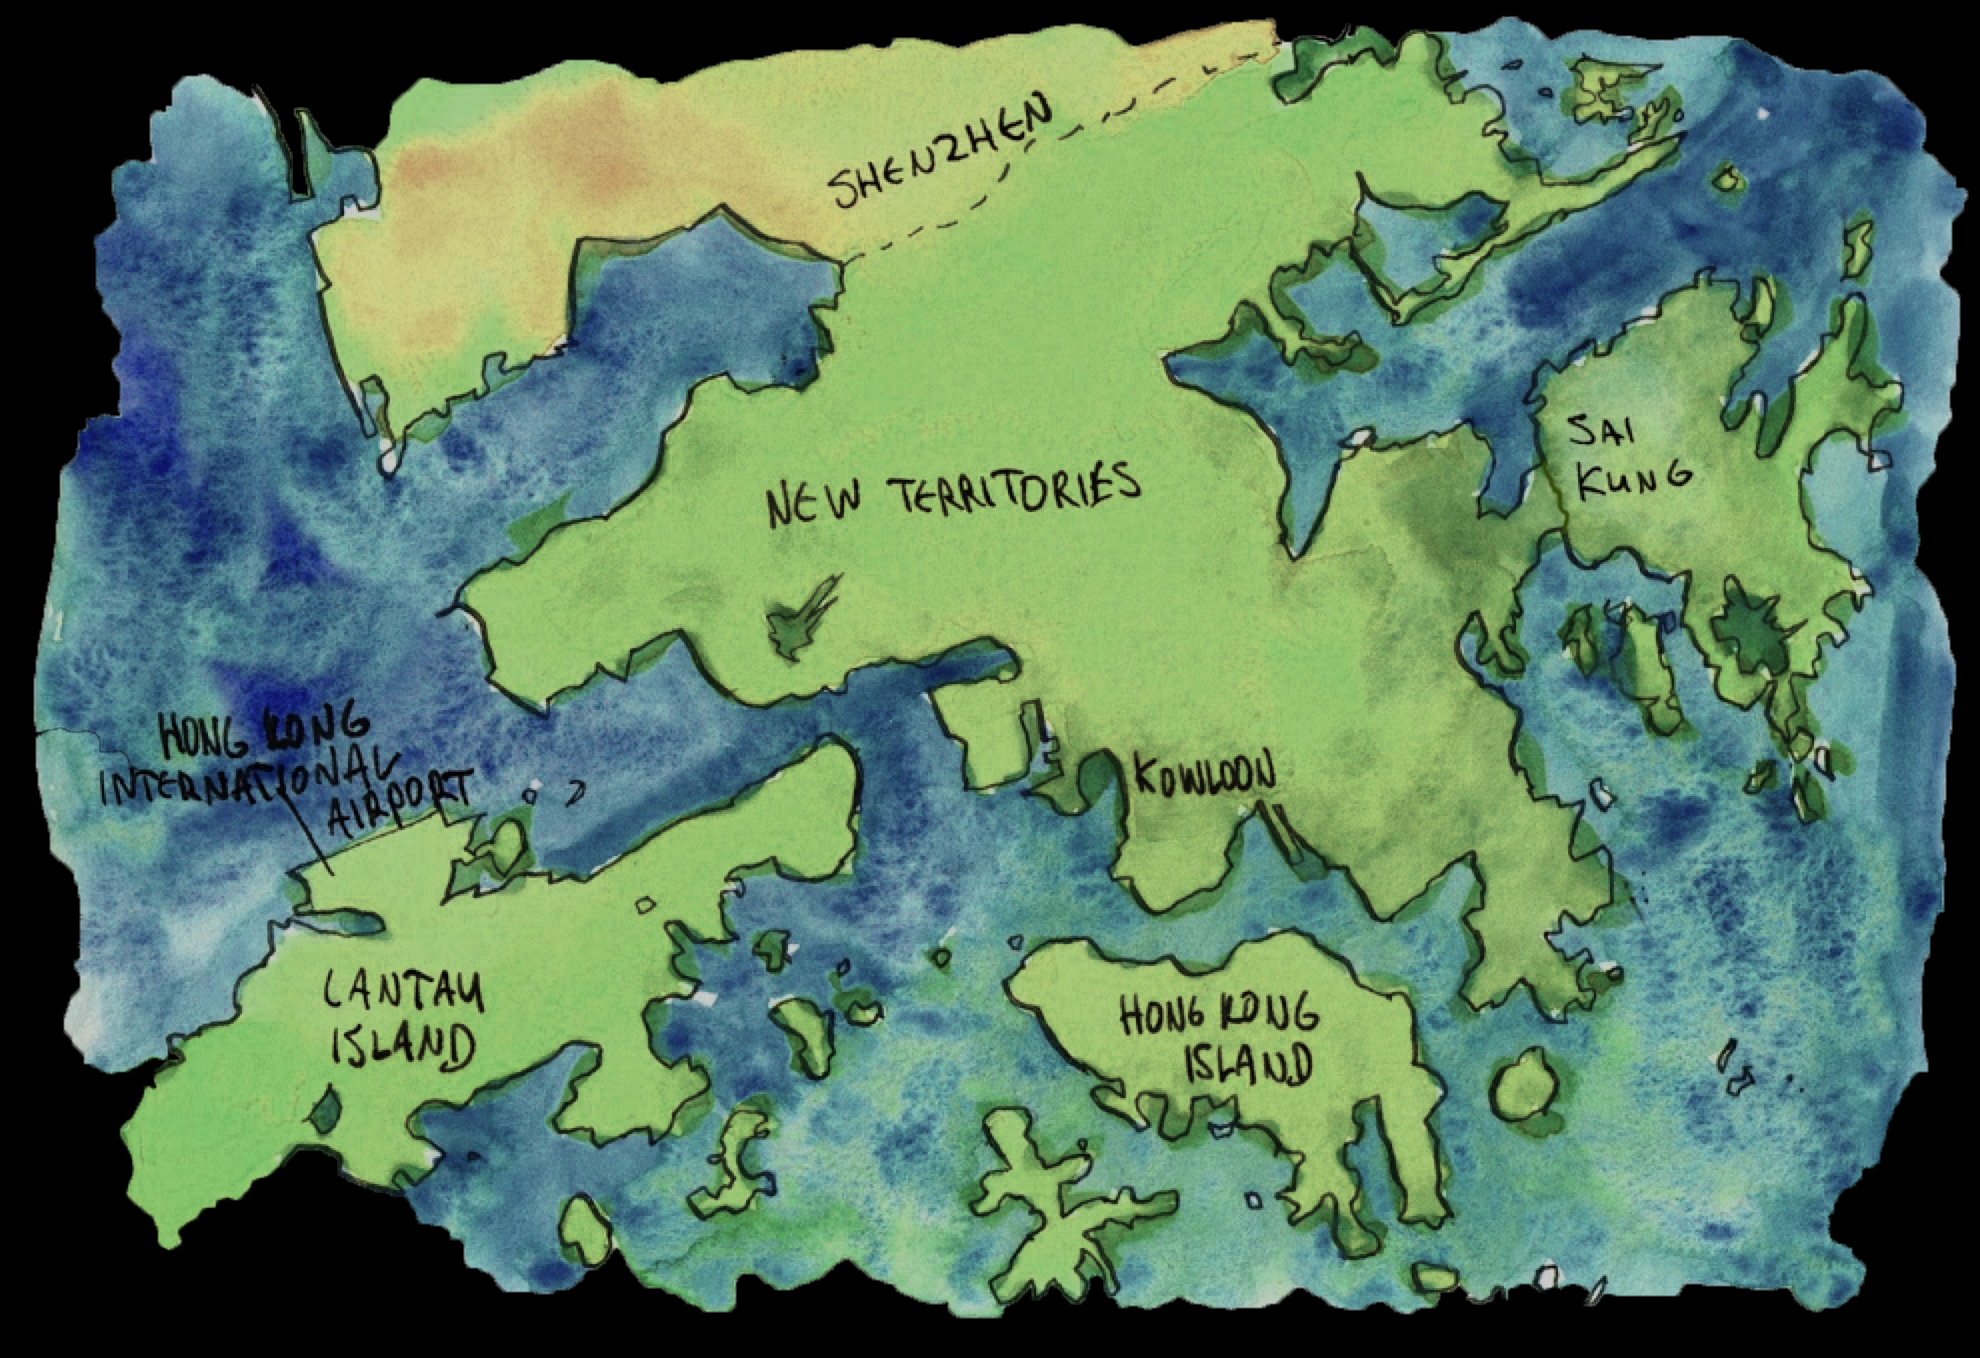 SHENZHEN
NEW TERRITORIES
SAI
KUNG
HONG KONG
INTERNATIONAL
AIRPORT
KOWLOON
LANTAU
ISLAND
HONG KONG
ISLAND